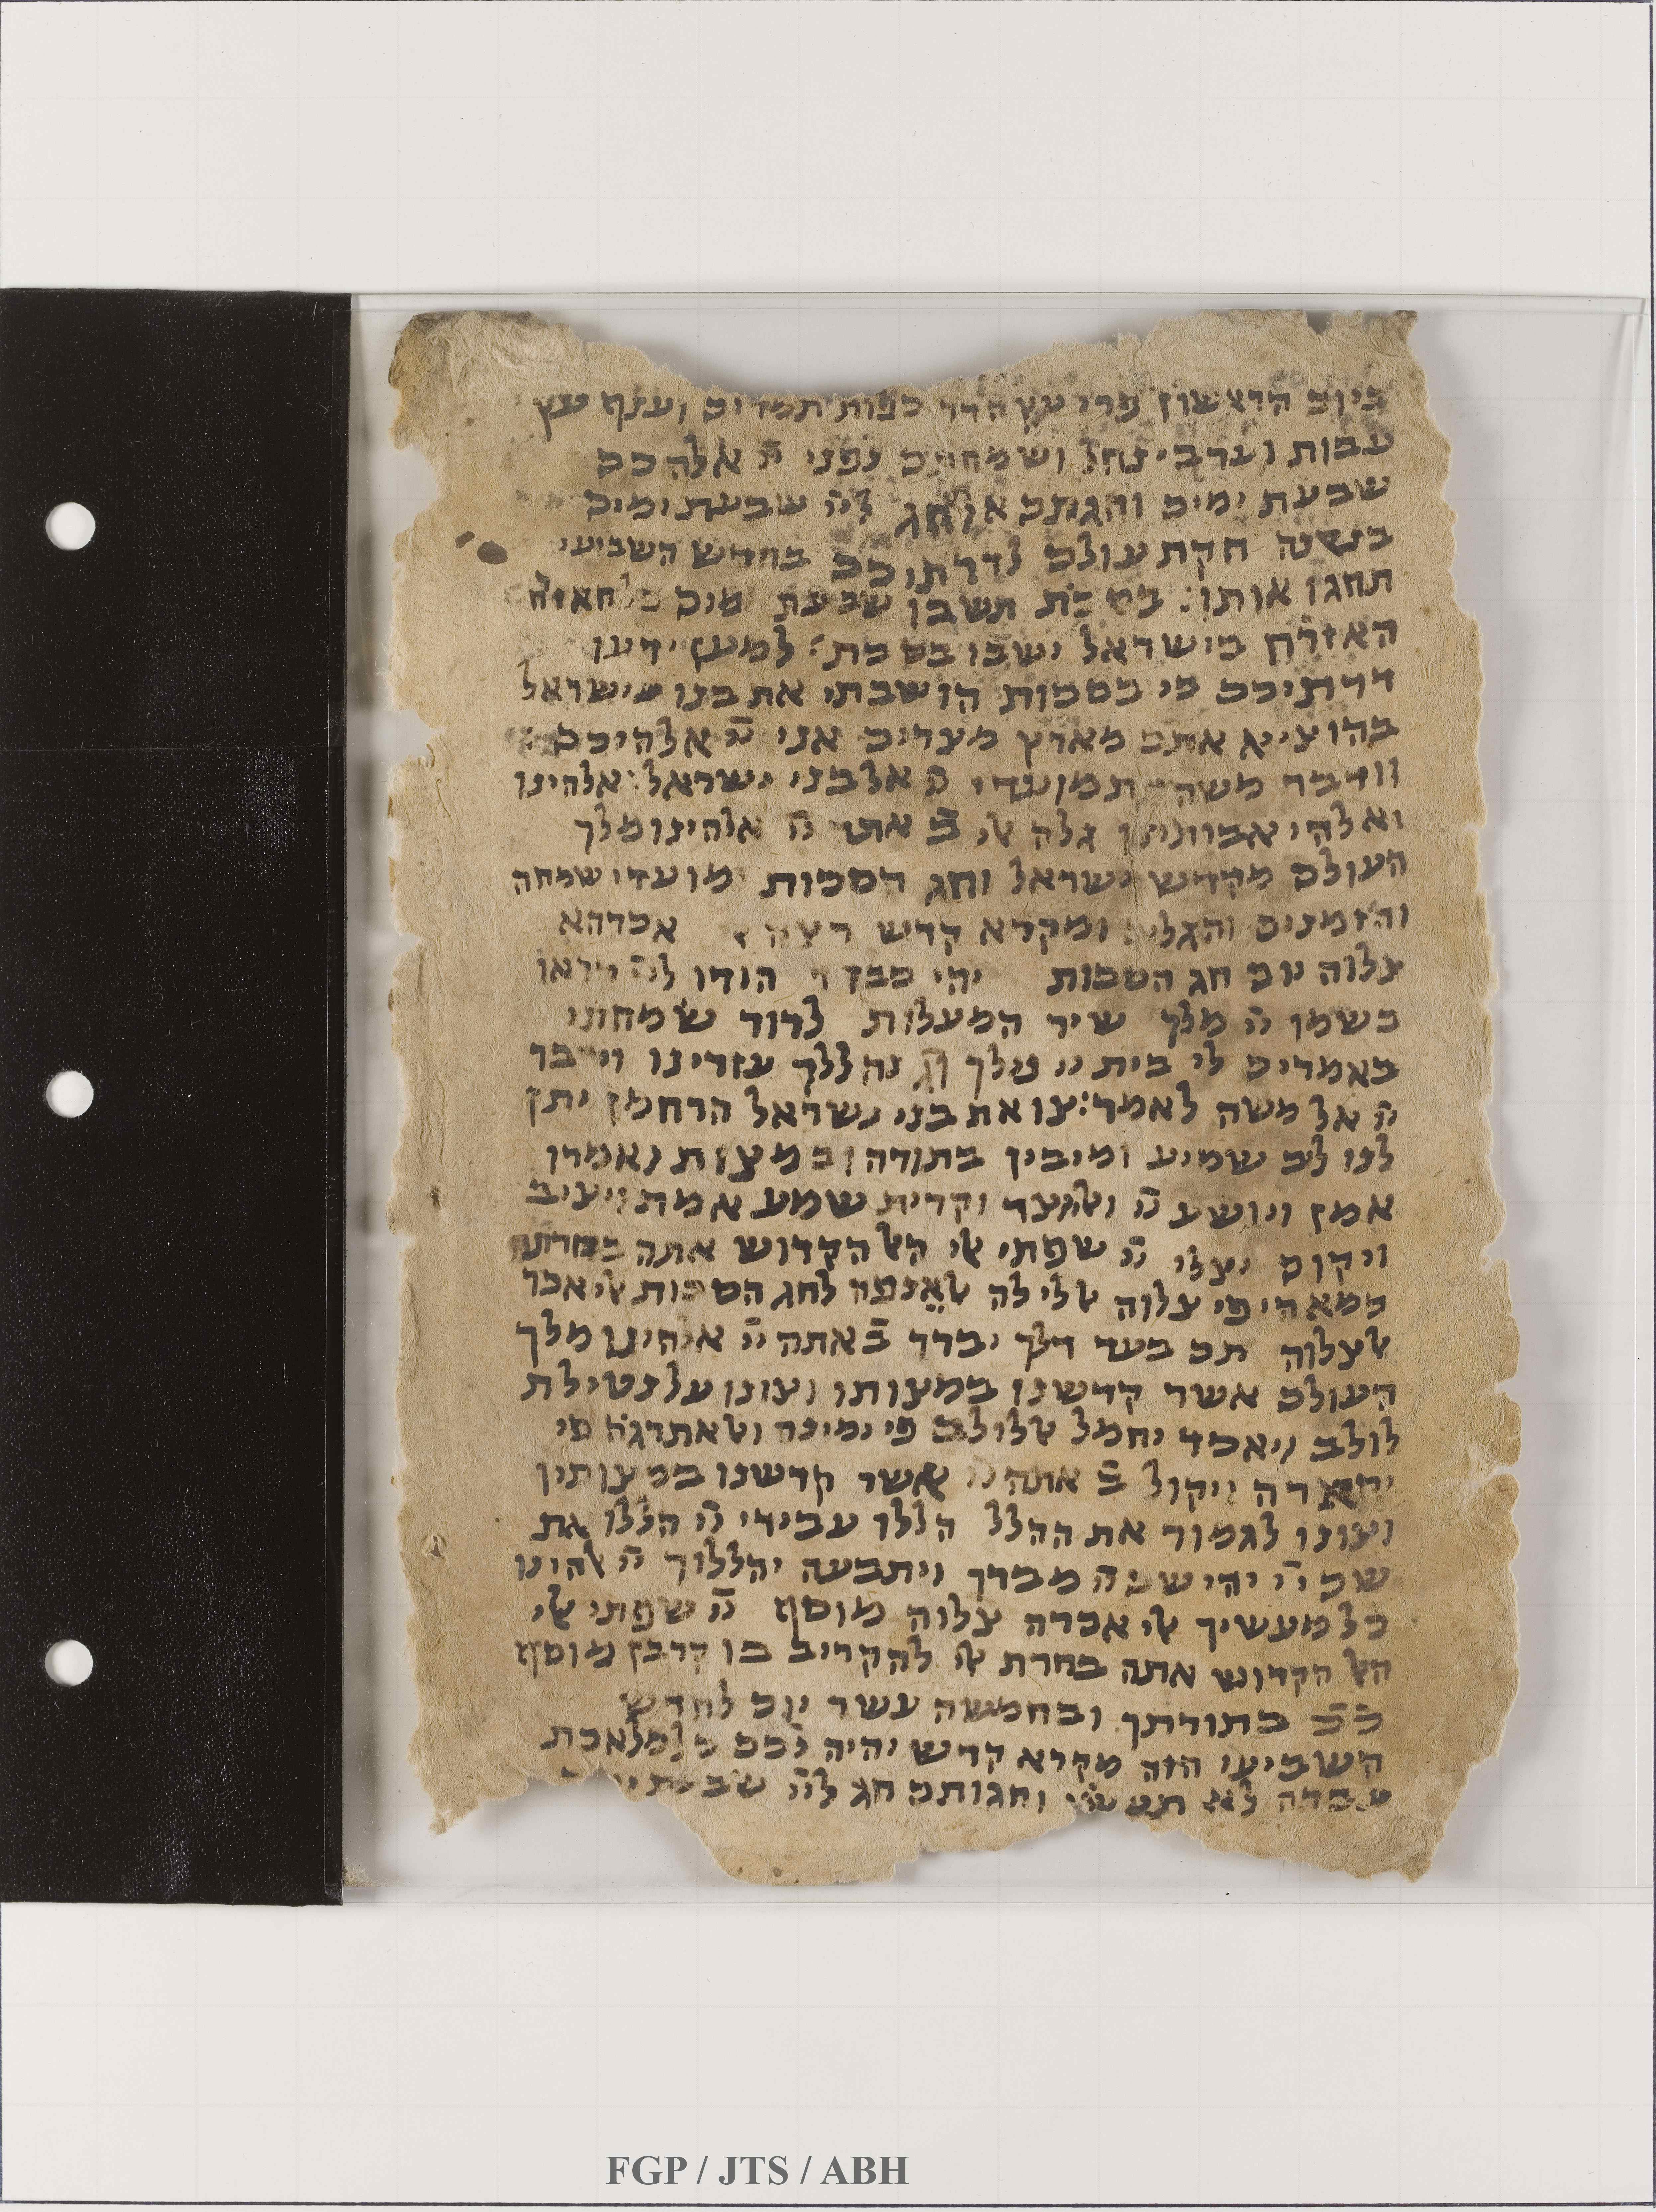 ביום הראשון פרי עץ הדר כפות תמרים וענף עץ
עבות וערבי נחל ושמחתם לפני יי אלהכם
שבעת ימים וחגתם אתו חג ליי שבעת ימים
בשנה חקת עולם לדרתיכם בחדש השביעי
תחגו אותו: בסכת תשבו שבעת ימים כל האזרח
האזרח בישראל ישבו בסכת: למען ידעו
דרתיכם כי בסכות הושבתי את בנו ישראל
בהוציא אתם מארץ מצרים אני יי אלהיכם
וידבר משה את מועדי יי אל בני ישראל: אלהינו
ואלהי אבותינו גלה אל ב אתה יי אלהינו מלך
העולם מקדש ישראל וחג הסכות מועדי שמחה
והזמנים והגלים ומקרא קדש רצה אכרהא
צלוה יום חג הסכות יהי כבד הודו ליי קראו
בשמו יי מלך שיר המעלות לדוד שמחתי
באמרים לי בית יי נלך וג נהללך עזרינו וידבר
יי אל משה לאמר: צו את בני ישראל הרחמן יתן
לנו לב שמיע ומיבין בתורה ובמצות ואמרו
אמן ויושע יי ואלוצר וקרית שמע אמת ויציב
ויקום יצלי יי שפתי אל האל הקדוש אתה בחרתנו
כמא הי פי צלוה אלילה אלאנפה לחג הסכות אל אכר
אלצלוה תם בעד דלך יברך ב אתה יי אלהינו מלך
העולם אשר קדשנו במצותו וצונו על נטילת
לולב ויאכד יחמל אללולב פי ימינה ואלאתרגה פי
יסארה ויקול ב אתה יי אשר קדשנו במצותיו
וצונו לגמור את ההלל הללו עבידי יי הללו את
שם יי יהי שם יי מברך ויתבעה יהללוך יי אלהינו
כל מעשיך אל אכרה צלוה מוסף יי שפתי אל
האל הקדוש אתה בחרת אל להקריב בו קרבן מוסף
ככ בתורתך ובחמשה עשר יום לחדש
השביעי הזה מקרא קדש יהיה לכם כל מלאכת
עבדה לא תעשו וחגותם חג ליי שבעת
FGP / JTS / ABH